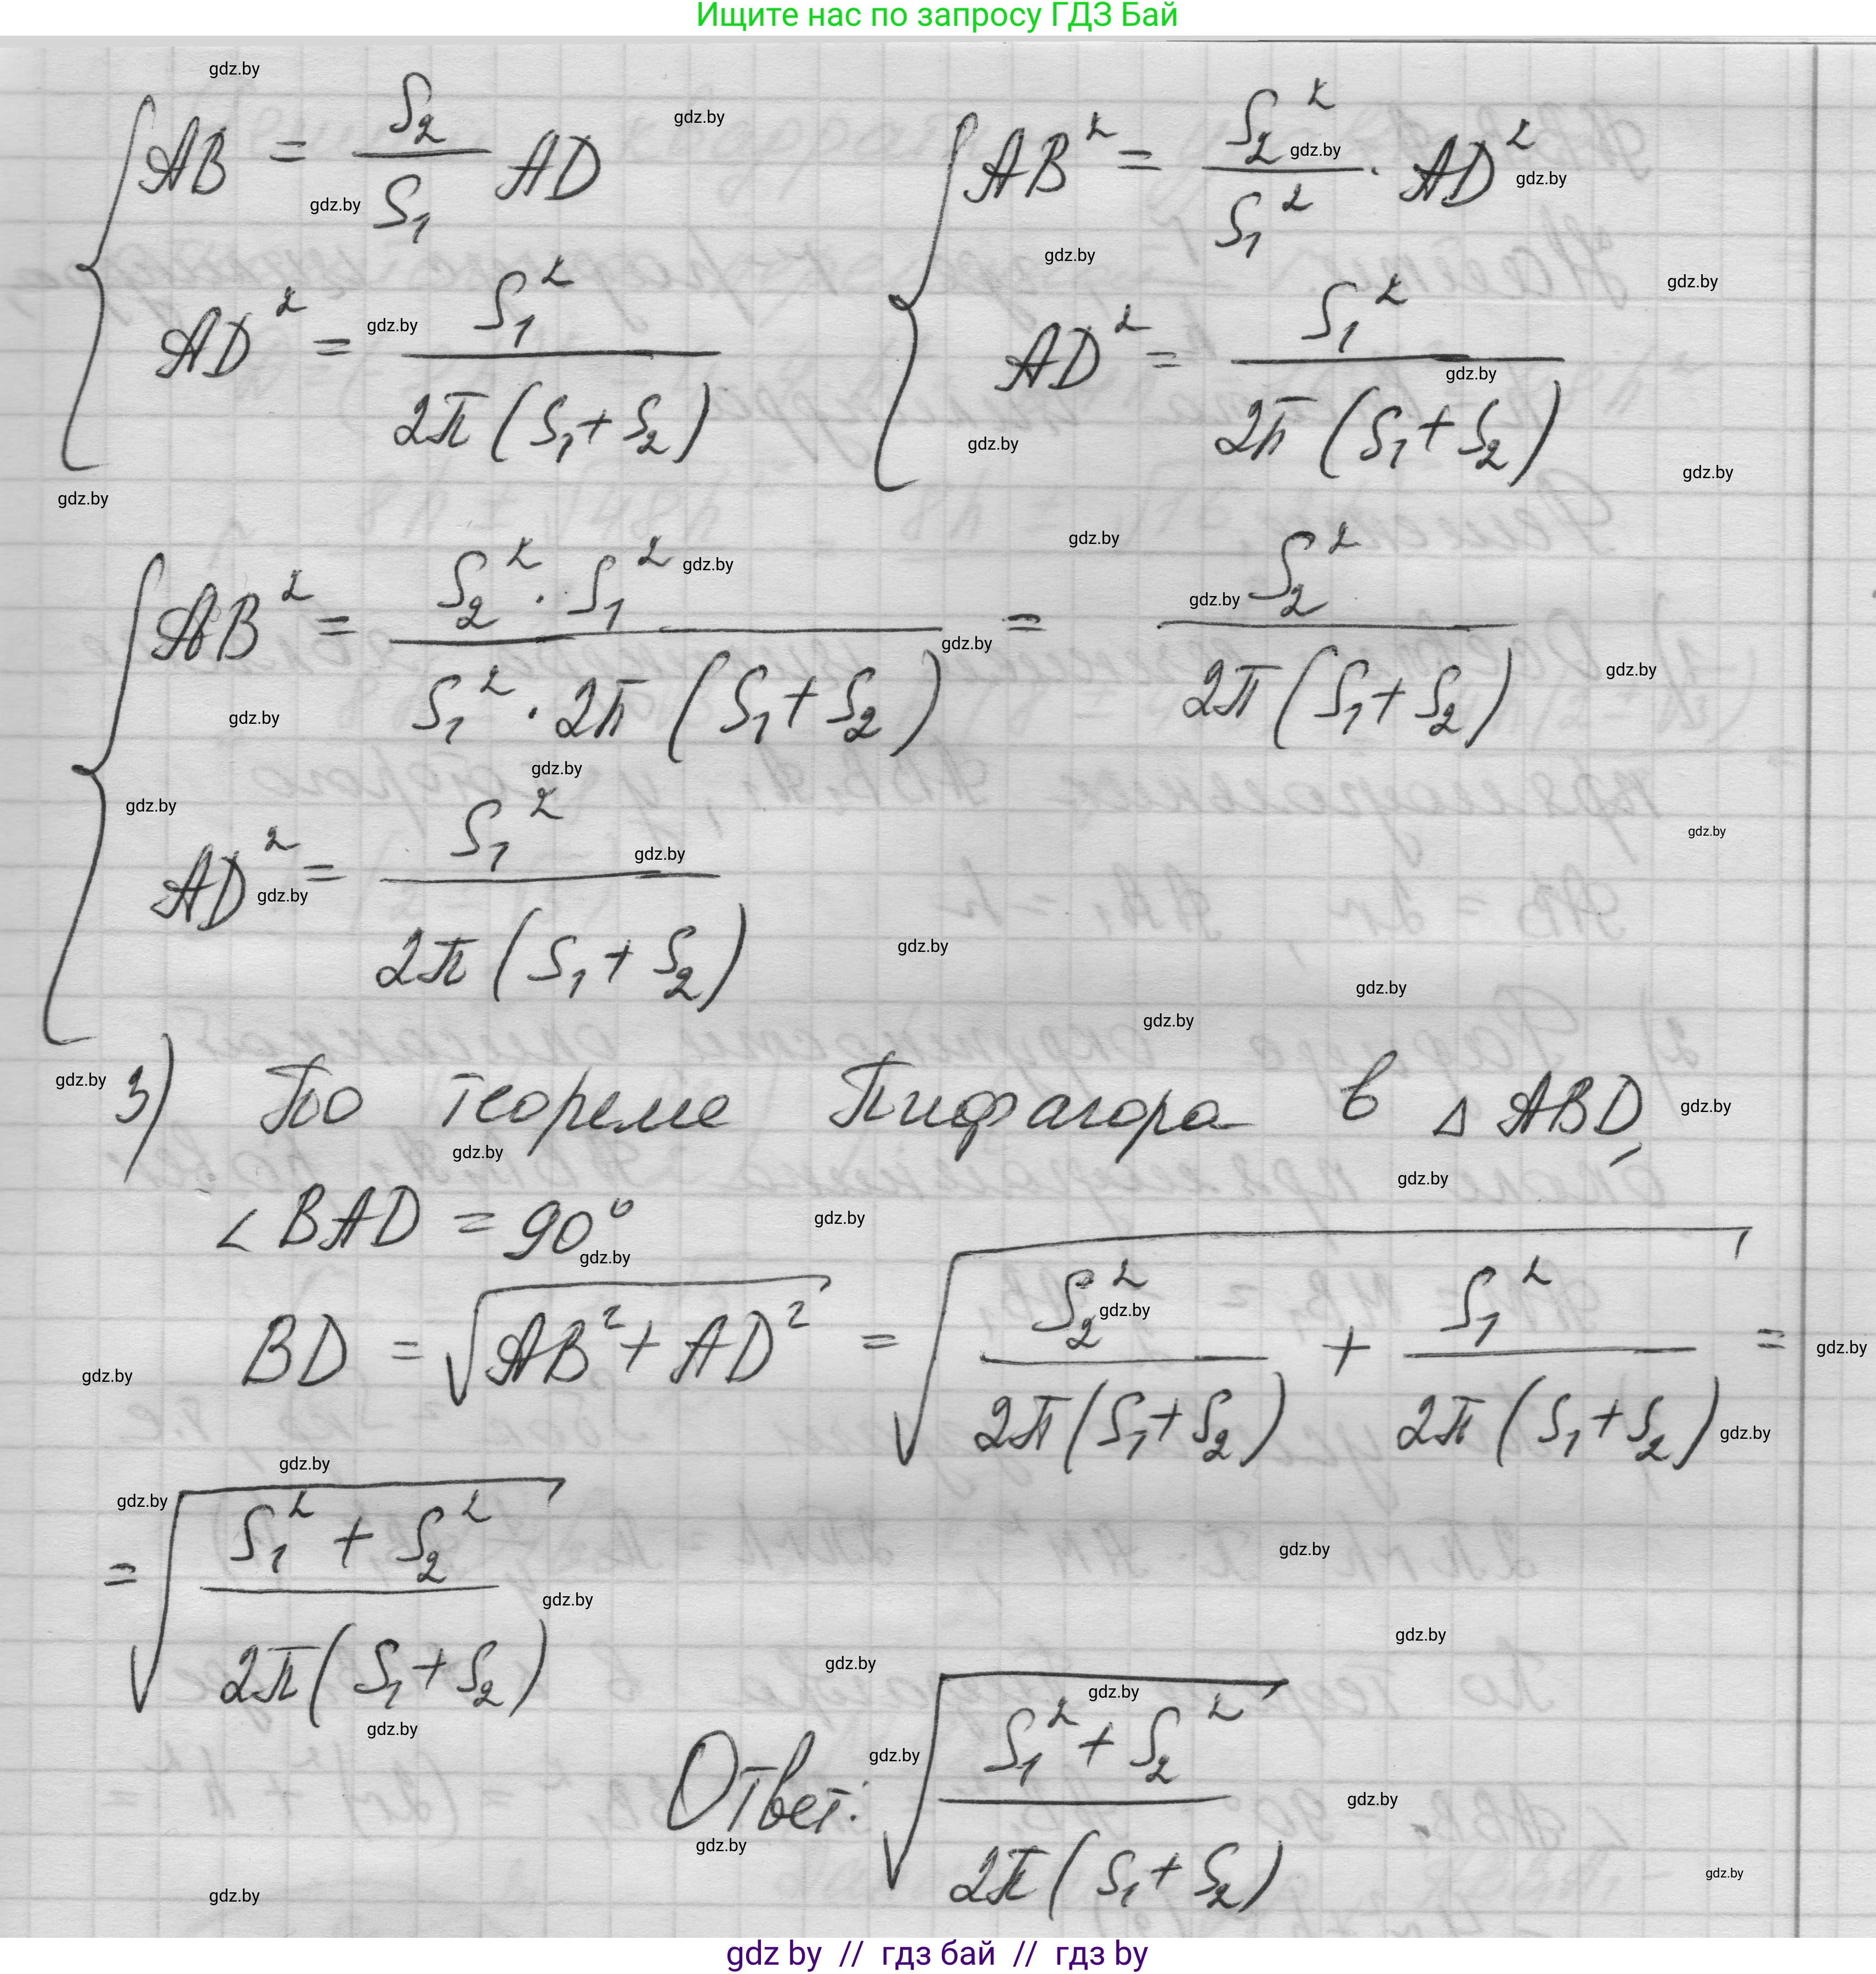 Ищите нас по запросу ГДЗ Бай
{ AB = S₂/S₁ AD
AD² = S₁²/(2π(S₁+S₂))
{ AB² = S₂²/S₁² · AD²
AD² = S₁²/(2π(S₁+S₂))
{ AB² = (S₂² · S₁²)/(S₁² · 2π(S₁+S₂)) = S₂²/(2π(S₁+S₂))
AD² = S₁²/(2π(S₁+S₂))
3) По теореме Пифагора в △ABD,
∠BAD = 90°
BD = √(AB² + AD²) = √(S₂²/(2π(S₁+S₂)) + S₁²/(2π(S₁+S₂))) =
= √((S₁² + S₂²)/(2π(S₁+S₂)))
Ответ: √((S₁² + S₂²)/(2π(S₁+S₂)))
gdz by // гдз бай // гдз by